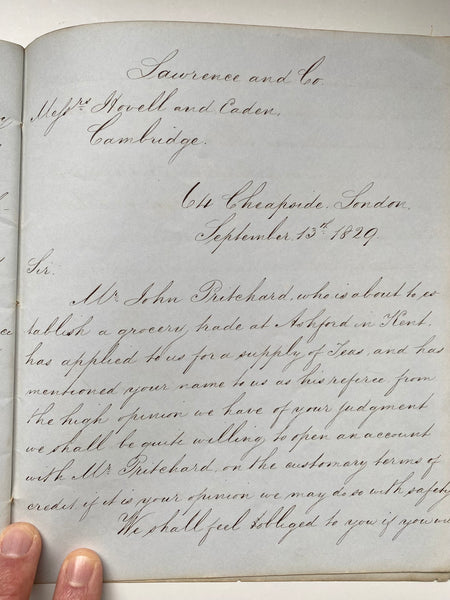 Lawrence and Co.
Messrs Hovell and Eaden,
Cambridge.
64 Cheapside. London,
September. 13th. 1829
Sir.
Mr. John Pritchard, who is about to, es
tablish a grocery trade at Ashford in Kent,
has applied to us for a supply of Teas, and has
mentioned your name to us as his referee from
the high opinion we have of your judgment
we shall be quite willing to open an account
with Mr. Pritchard, on the customary terms of
credit, if it is your opinion we may do so with safety
We shall feel obliged to you if you